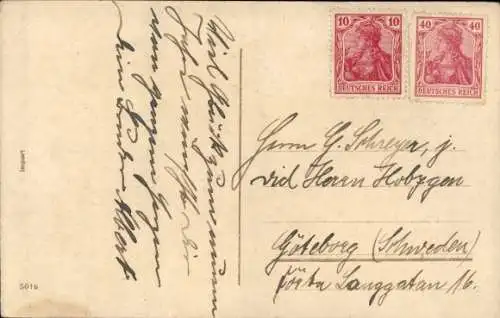 10 10
DEUTSCHES REICH
40 40
DEUTSCHES REICH
Viel Glück zum neuen
Jahr wünscht Dir
von ganzem Herzen
Dein Bruder Albert
Herrn G. Schreyer, j.
vid Herrn Hobzgen
Göteborg (Schweden)
Första Langgatan 16.
Import
5016